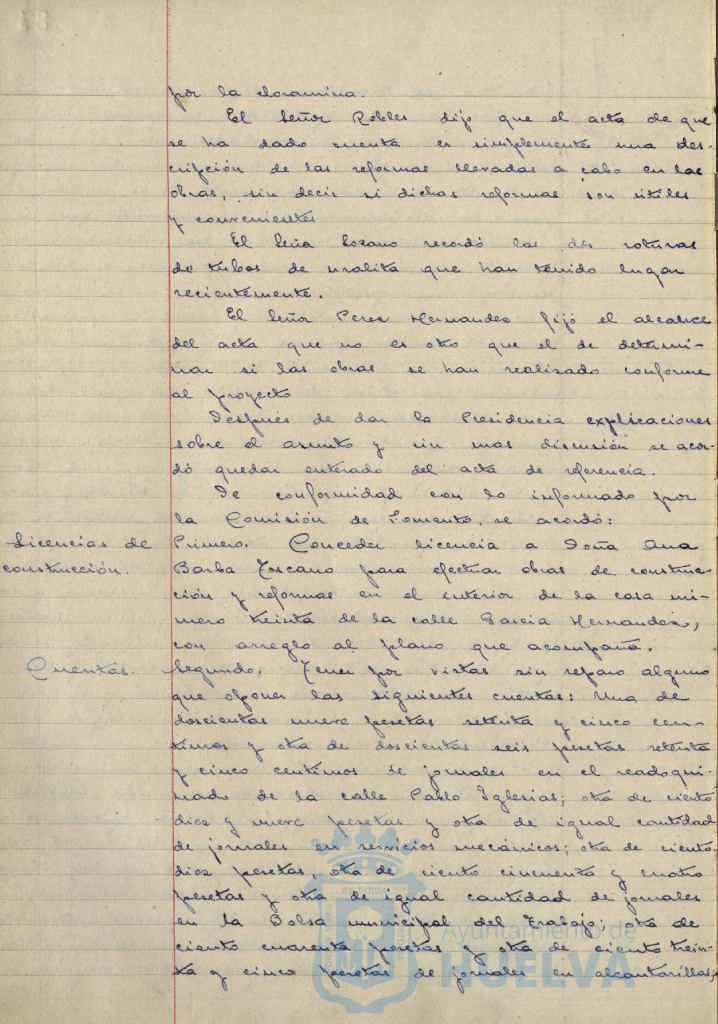 por la cloramina.
El Señor Robles dijo que el acta de que
se ha dado cuenta es simplemente una des-
cripción de las reformas llevadas a cabo en las
obras, sin decir si dichas reformas son útiles
y convenientes
El Señor Lozano recordó las dos roturas
de tubos de uralita que han tenido lugar
recientemente.
El Señor Perez Hernandez fijó el alcance
del acta que no es otro que el de determi-
nar si las obras se han realizado conforme
al proyecto
Después de dar la Presidencia explicaciones
sobre el asunto y sin mas discusión se acor-
dó quedar enterado del acta de referencia.
De conformidad con lo informado por
la Comisión de Fomento, se acordó:
Licencias de construcción.
Primero. Conceder licencia a Doña Ana
Barba Toscano para efectuar obras de construc-
ción y reformas en el interior de la casa nú-
mero treinta de la calle Garcia Hernandez,
con arreglo al plano que acompaña.
Cuentas.
Segundo. Tener por vistas sin reparo alguno
que oponer las siguientes cuentas: Una de
doscientas nueve pesetas setenta y cinco cen-
timos y otra de doscientas seis pesetas setenta
y cinco centimos de jornales en el readoqui-
nado de la calle Pablo Iglesias; otra de ciento
diez y nueve pesetas y otra de igual cantidad
de jornales en servicios mecánicos; otra de ciento
diez pesetas, otra de ciento cincuenta y cuatro
pesetas y otra de igual cantidad de jornales
en la Bolsa municipal del Trabajo; otra de
ciento cuarenta pesetas y otra de ciento trein-
ta y cinco pesetas de jornales en alcantarillas;
Ayuntamiento de
HUELVA